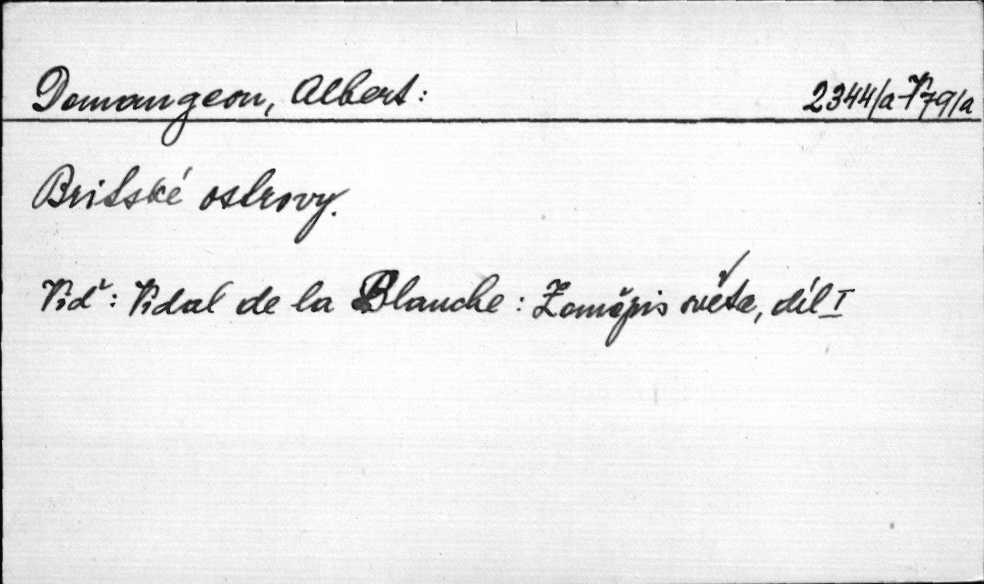 Demangeon, Albert: 2344/a-V79/a
Britské ostrovy.
Viď: Vidal de la Blanche: Zeměpis světa, díl I